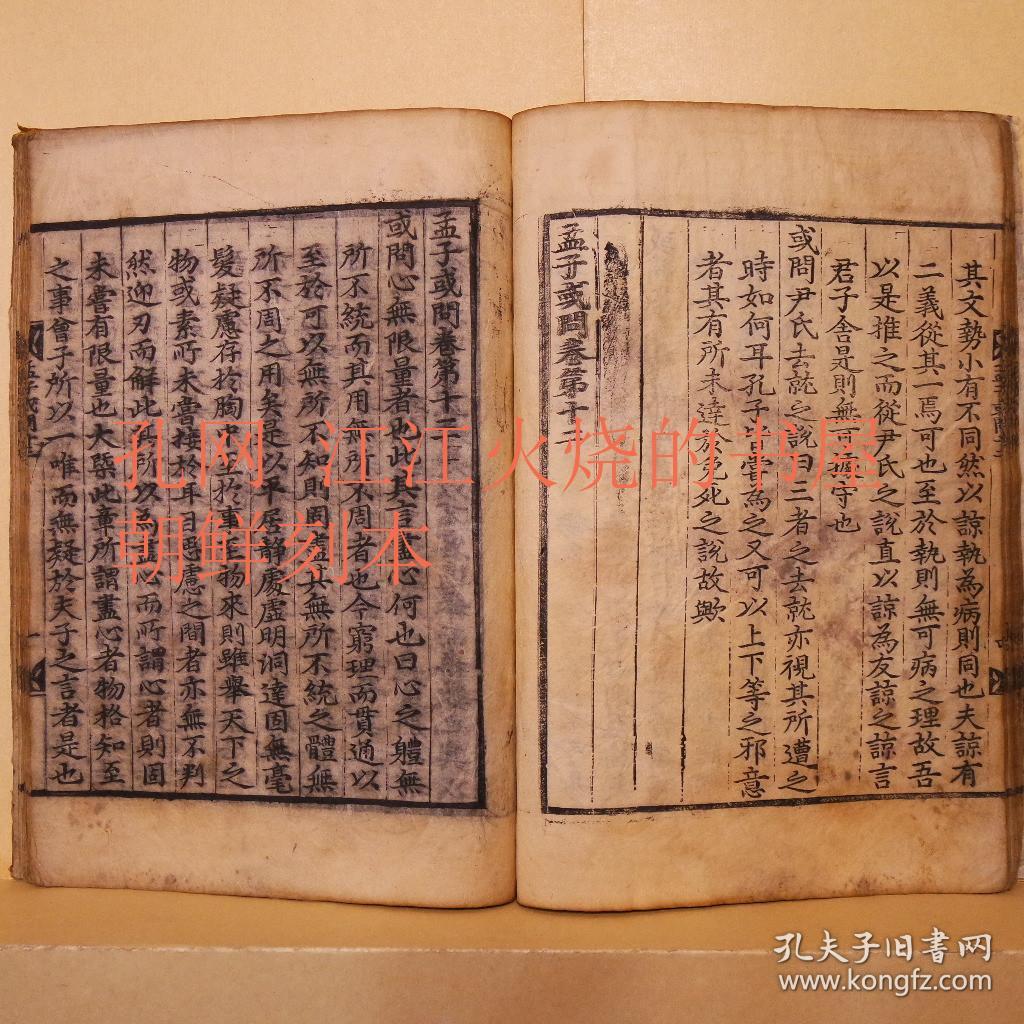 其文勢小有不同然以諒執為病則同也夫諒有
二義從其一焉可也至於執則無可病之理故吾
以是推之而從尹氏之說直以諒為友諒之諒言
君子舍是則無可守也
或問尹氏去就之說曰三者之去就亦視其所遭之
時如何耳孔子嘗為之又可以上下等之邪意
者其有所未達於免死之說故歟
孟子或問卷第十二
孟子或問卷第十三
或問心無限量者也此其言盡心何也曰心之軆無
所不統而其用無所不周者也今窮理而貫通以
至於可以無所不知則固盡其無所不統之體無
所不周之用矣是以平居靜處虛明洞達固無毫
髮疑慮存於胸中至於事至物來則雖舉天下之
物或素所未嘗接於耳目思慮之間者亦無不判
然迎刃而解此其所以為盡心而所謂心者則固
未嘗有限量也大槩此章所謂盡心者物格知至
之事曾子所以一唯而無疑於夫子之言者是也
孔网 江江火烧的书屋
朝鲜刻本
孔夫子旧书网
www.kongfz.com